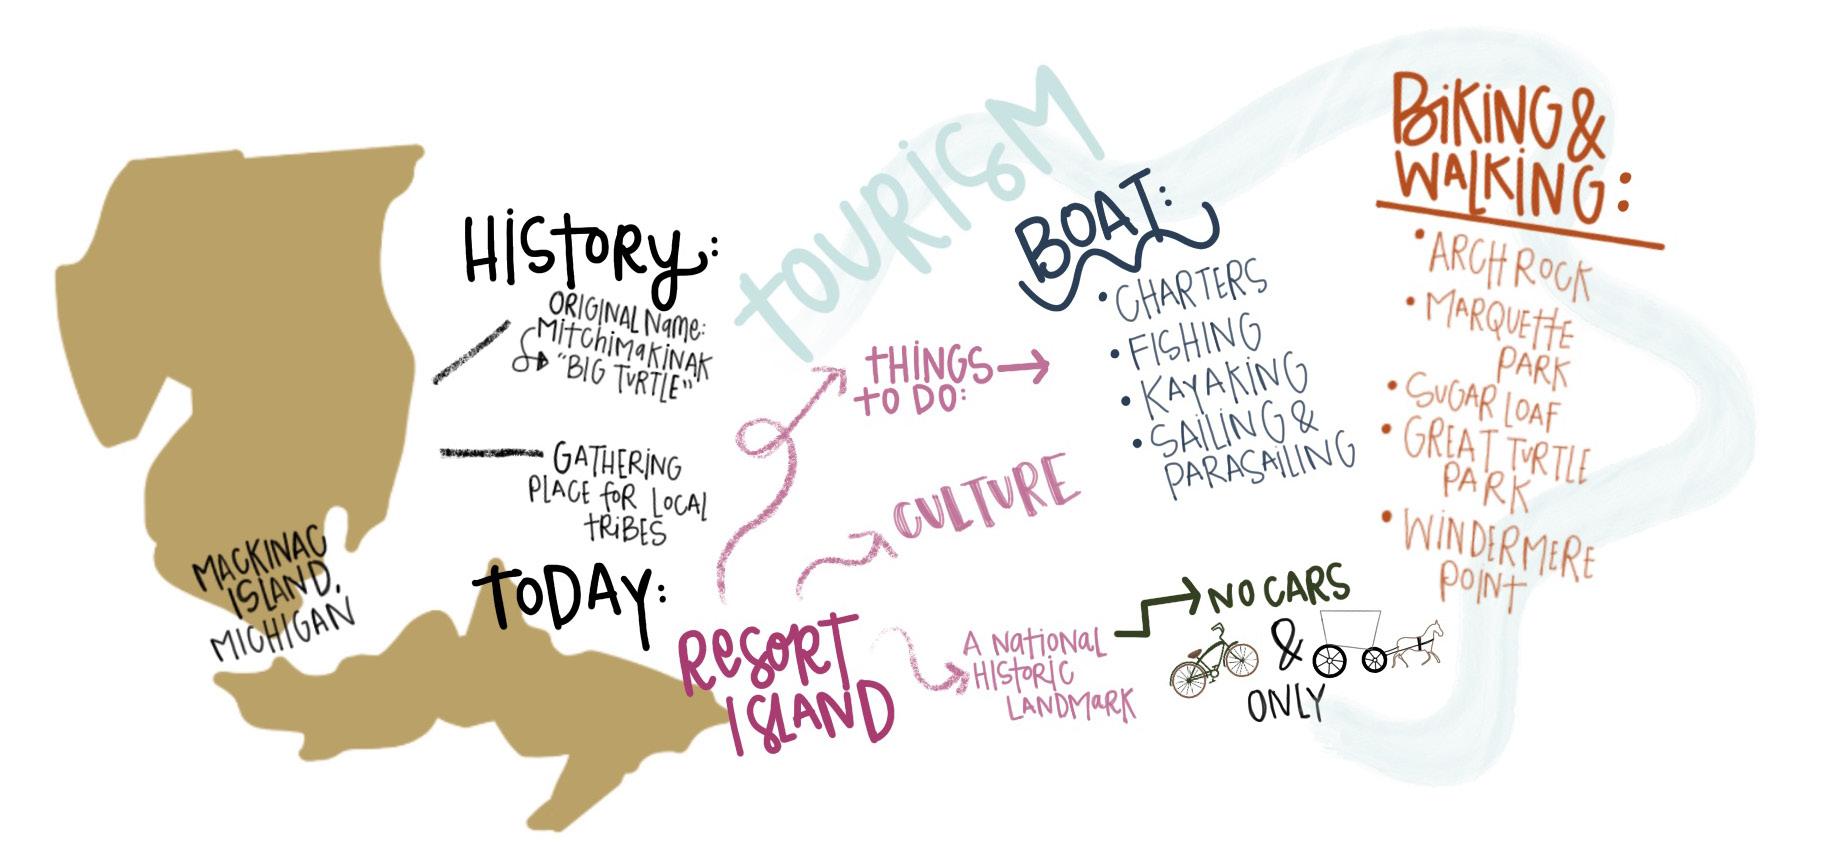 MACKINAC
ISLAND,
MICHIGAN
HISTORY:
ORIGINAL NAME:
MITCHIMAKINAK
"BIG TURTLE"
GATHERING
PLACE FOR LOCAL
TRIBES
TODAY:
RESORT
ISLAND
TOURISM
THINGS
TO DO:
CULTURE
A NATIONAL
HISTORIC
LANDMARK
NO CARS
&
ONLY
BOAT:
• CHARTERS
• FISHING
• KAYAKING
• SAILING &
PARASAILING
BIKING &
WALKING:
• ARCH ROCK
• MARQUETTE
PARK
• SUGAR LOAF
• GREAT TURTLE
PARK
• WINDERMERE
POINT